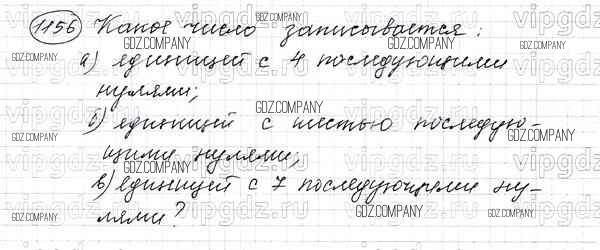 1156 Какое число записывается:
а) единицей с 4 последующими
нулями;
б) единицей с шестью последую-
щими нулями;
в) единицей с 7 последующими ну-
лями?